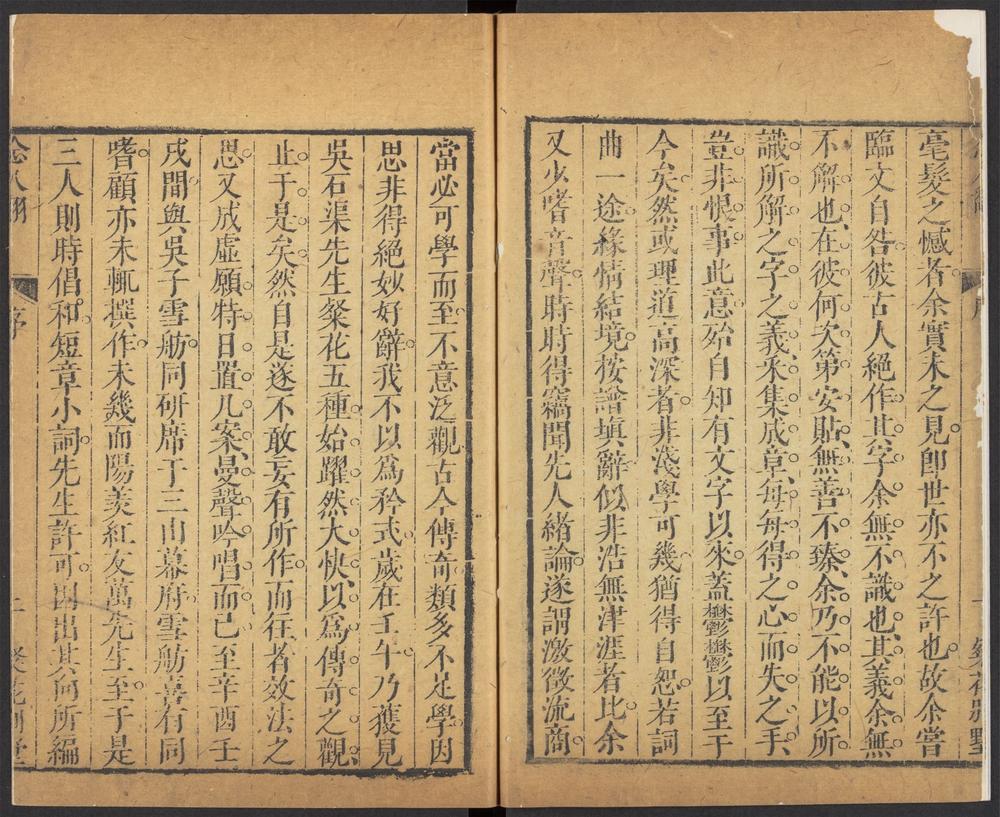 毫髮之憾者余實未之見卽世亦不之許也故余嘗
臨文自咎彼古人絕作其字余無不識也其義余無
不解也在彼何次第安貼無善不臻余乃不能以所
識所解之字之義釆集成章每每得之心而失之手
豈非恨事此意殆自知有文字以來蓋鬱鬱鬱鬱以至于
今矣然或理道高深者非淺學可幾猶得自恕若詞
曲一途緣情結境按譜填辭似非浩無津涯者比余
又少嗜音聲時時得竊聞先人緒論遂謂激徵流商
當必可學而至不意泛觀古今傳奇類多不足學因
思非得絕妙好辭我不以爲矜式歲在壬午乃獲見
吳石渠先生粲花五種始躍然大快以爲傳奇之觀
止于是矣然自是遂不敢妄有所作而往者效法之
思又成虛願特日置几案曼聲吟唱而已至辛酉壬
戌間與吳子雪舫同研席于三山幕府雪舫喜有同
嗜顧亦未輒撰作未幾而陽羨紅友萬先生至于是
三人則時倡和短章小詞先生許可因出其向所編
序